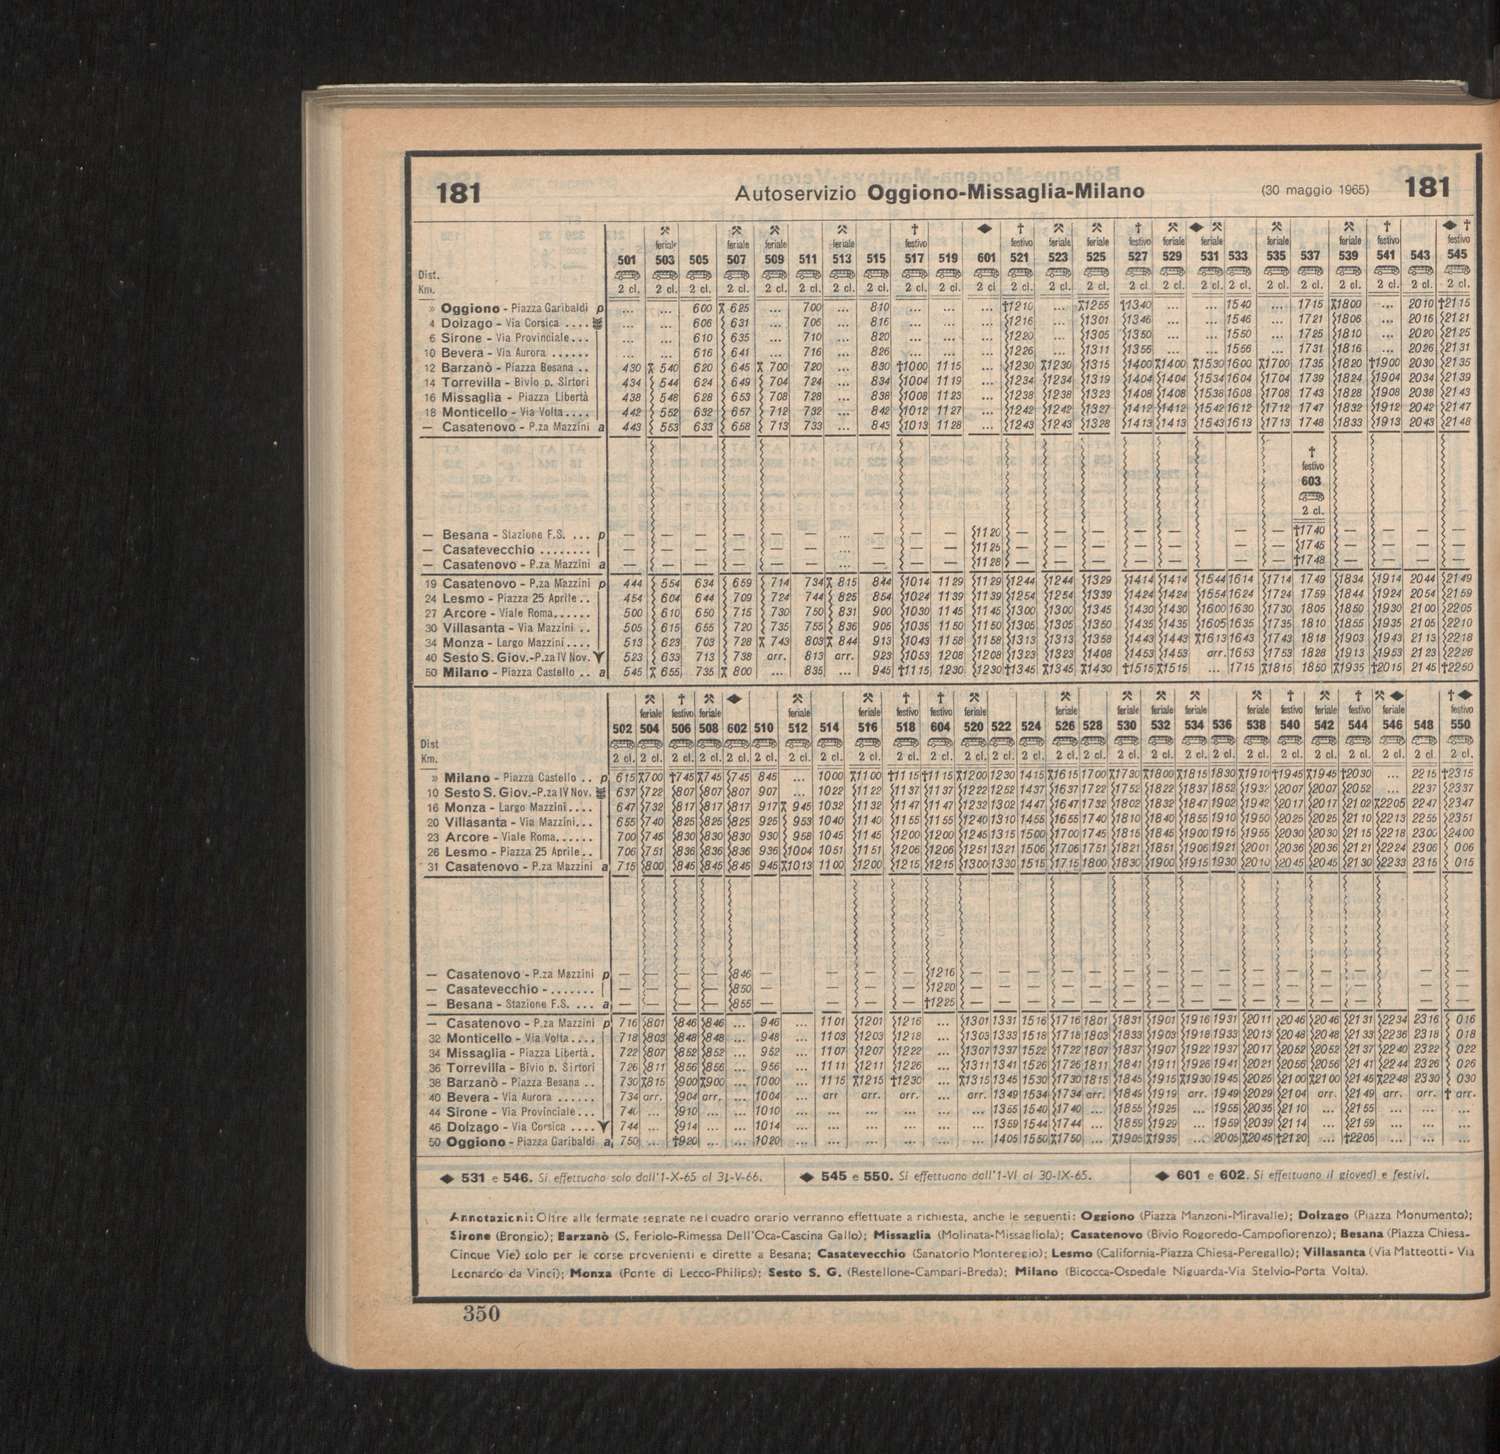 181 Autoservizio Oggiono-Missaglia-Milano (30 maggio 1965) 181
feriale feriale feriale feriale festivo festivo feriale feriale festivo feriale feriale feriale feriale festivo festivo
501 503 505 507 509 511 513 515 517 519 601 521 523 525 527 529 531 533 535 537 539 541 543 545
Dist. Km. 2 cl. 2 cl. 2 cl. 2 cl. 2 cl. 2 cl. 2 cl. 2 cl. 2 cl. 2 cl. 2 cl. 2 cl. 2 cl. 2 cl. 2 cl. 2 cl. 2 cl. 2 cl. 2 cl. 2 cl. 2 cl. 2 cl. 2 cl. 2 cl.
» Oggiono - Piazza Garibaldi p ... ... 600 625 ... 700 ... 810 ... ... ... †1210 ... 1255 †1340 ... ... 1540 ... 1715 1800 ... 2010 †2115
4 Dolzago - Via Corsica .... ... ... 606 631 ... 706 ... 816 ... ... ... 1216 ... 1301 1346 ... ... 1546 ... 1721 1806 ... 2016 2121
6 Sirone - Via Provinciale... ... ... 610 635 ... 710 ... 820 ... ... ... 1220 ... 1305 1350 ... ... 1550 ... 1725 1810 ... 2020 2125
10 Bevera - Via Aurora ...... ... ... 616 641 ... 716 ... 826 ... ... ... 1226 ... 1311 1355 ... ... 1556 ... 1731 1816 ... 2026 2131
12 Barzanò - Piazza Besana .. 430 540 620 645 700 720 ... 830 †1000 1115 ... 1230 1230 1315 1400 1400 1530 1600 1700 1735 1820 †1900 2030 2135
14 Torrevilla - Bivio p. Sirtori 434 544 624 649 704 724 ... 834 1004 1119 ... 1234 1234 1319 1404 1404 1534 1604 1704 1739 1824 1904 2034 2139
16 Missaglia - Piazza Libertà 438 548 628 653 708 728 ... 838 1008 1123 ... 1238 1238 1323 1408 1408 1538 1608 1708 1743 1828 1908 2038 2143
18 Monticello - Via Volta.... 442 552 632 657 712 732 ... 842 1012 1127 ... 1242 1242 1327 1412 1412 1542 1612 1712 1747 1832 1912 2042 2147
— Casatenovo - P.za Mazzini a 443 553 633 658 713 733 ... 843 1013 1128 ... 1243 1243 1328 1413 1413 1543 1613 1713 1748 1833 1913 2043 2148
† festivo 603 2 cl.
— Besana - Stazione F.S. ... p — — — — — — ... — — — 1120 — — — — — — — †1740 — — — —
— Casatevecchio ........ — — — — — — ... — — — 1125 — — — — — — — 1745 — — — —
— Casatenovo - P.za Mazzini a — — — — — — ... — — — 1128 — — — — — — — †1748 — — — —
19 Casatenovo - P.za Mazzini p 444 554 634 659 714 734 815 844 1014 1129 1129 1244 1244 1329 1414 1414 1544 1614 1714 1749 1834 1914 2044 2149
24 Lesmo - Piazza 25 Aprile.. 454 604 644 709 724 744 825 854 1024 1139 1139 1254 1254 1339 1424 1424 1554 1624 1724 1759 1844 1924 2054 2159
27 Arcore - Viale Roma...... 500 610 650 715 730 750 831 900 1030 1145 1145 1300 1300 1345 1430 1430 1600 1630 1730 1805 1850 1930 2100 2205
30 Villasanta - Via Mazzini .. 505 615 655 720 735 755 836 905 1035 1150 1150 1305 1305 1350 1435 1435 1605 1635 1735 1810 1855 1935 2105 2210
34 Monza - Largo Mazzini.... 513 623 703 728 743 803 844 913 1043 1158 1158 1313 1313 1358 1443 1443 1613 1643 1743 1818 1903 1943 2113 2218
40 Sesto S. Giov.-P.za IV Nov. 523 633 713 738 arr. 813 arr. 923 1053 1208 1208 1323 1323 1408 1453 1453 arr. 1653 1753 1828 1913 1953 2123 2228
50 Milano - Piazza Castello .. a 545 655 735 800 ... 835 ... 945 †1115 1230 1230 †1345 1345 1430 †1515 1515 ... 1715 1815 1850 1935 †2015 2145 †2250
feriale festivo feriale feriale feriale festivo festivo feriale feriale feriale feriale feriale feriale festivo feriale festivo feriale festivo
502 504 506 508 602 510 512 514 516 518 604 520 522 524 526 528 530 532 534 536 538 540 542 544 546 548 550
Dist Km. 2 cl. 2 cl. 2 cl. 2 cl. 2 cl. 2 cl. 2 cl. 2 cl. 2 cl. 2 cl. 2 cl. 2 cl. 2 cl. 2 cl. 2 cl. 2 cl. 2 cl. 2 cl. 2 cl. 2 cl. 2 cl. 2 cl. 2 cl. 2 cl. 2 cl. 2 cl. 2 cl.
» Milano - Piazza Castello .. p 615 700 †745 745 745 845 ... 1000 1100 †1115 †1115 1200 1230 1415 1615 1700 1730 1800 1815 1830 1910 †1945 1945 †2030 ... 2215 †2315
10 Sesto S. Giov.-P.za IV Nov. 637 722 807 807 807 907 ... 1022 1122 1137 1137 1222 1252 1437 1637 1722 1752 1822 1837 1852 1932 2007 2007 2052 ... 2237 2337
16 Monza - Largo Mazzini.... 647 732 817 817 817 917 945 1032 1132 1147 1147 1232 1302 1447 1647 1732 1802 1832 1847 1902 1942 2017 2017 2102 2205 2247 2347
20 Villasanta - Via Mazzini... 655 740 825 825 825 925 953 1040 1140 1155 1155 1240 1310 1455 1655 1740 1810 1840 1855 1910 1950 2025 2025 2110 2213 2255 2351
23 Arcore - Viale Roma...... 700 745 830 830 830 930 958 1045 1145 1200 1200 1245 1315 1500 1700 1745 1815 1845 1900 1915 1955 2030 2030 2115 2218 2300 2400
26 Lesmo - Piazza 25 Aprile.. 706 751 836 836 836 936 1004 1051 1151 1206 1206 1251 1321 1506 1706 1751 1821 1851 1906 1921 2001 2036 2036 2121 2224 2306 006
31 Casatenovo - P.za Mazzini a 715 800 845 845 845 945 1013 1100 1200 1215 1215 1300 1330 1515 1715 1800 1830 1900 1915 1930 2010 2045 2045 2130 2233 2315 015
— Casatenovo - P.za Mazzini p — — — — 846 — — — — 1216 — — — — — — — — — — — — — — — —
— Casatevecchio - ....... — — — — 850 — — — — 1220 — — — — — — — — — — — — — — — —
— Besana - Stazione F.S. ... a — — — — 855 — — — — †1225 — — — — — — — — — — — — — — — —
— Casatenovo - P.za Mazzini p 716 801 846 846 ... 946 ... 1101 1201 1216 ... 1301 1331 1516 1716 1801 1831 1901 1916 1931 2011 2046 2046 2131 2234 2316 016
32 Monticello - Via Volta.... 718 803 848 848 ... 948 ... 1103 1203 1218 ... 1303 1333 1518 1718 1803 1833 1903 1918 1933 2013 2048 2048 2133 2236 2318 018
34 Missaglia - Piazza Libertà. 722 807 852 852 ... 952 ... 1107 1207 1222 ... 1307 1337 1522 1722 1807 1837 1907 1922 1937 2017 2052 2052 2137 2240 2322 022
36 Torrevilla - Bivio p. Sirtori 726 811 856 856 ... 956 ... 1111 1211 1226 ... 1311 1341 1526 1726 1811 1841 1911 1926 1941 2021 2056 2056 2141 2244 2326 026
38 Barzanò - Piazza Besana .. 730 815 900 900 ... 1000 ... 1115 1215 †1230 ... 1315 1345 1530 1730 1815 1845 1915 1930 1945 2025 2100 2100 2145 2248 2330 030
40 Bevera - Via Aurora ...... 734 arr. 904 arr. ... 1004 ... arr arr. arr. ... arr. 1349 1534 1734 arr. 1849 1919 arr. 1949 2029 2104 arr. 2149 arr. arr. † arr.
44 Sirone - Via Provinciale... 740 ... 910 ... ... 1010 ... ... ... ... ... ... 1355 1540 1740 ... 1855 1925 ... 1955 2035 2110 ... 2155 ... ... ...
46 Dolzago - Via Corsica .... 744 ... 914 ... ... 1014 ... ... ... ... ... ... 1359 1544 1744 ... 1859 1929 ... 1959 2039 2114 ... 2159 ... ... ...
50 Oggiono - Piazza Garibaldi a 750 ... †920 ... ... 1020 ... ... ... ... ... ... 1405 1550 1750 ... 1905 1935 ... 2005 2045 †2120 ... †2205 ... ... ...
◆ 531 e 546. Si effettuano solo dall'1-X-65 al 31-V-66. ◆ 545 e 550. Si effettuano dall'1-VI al 30-IX-65. ◆ 601 e 602. Si effettuano il giovedì e festivi.
Annotazioni: Oltre alle fermate segnate nel quadro orario verranno effettuate a richiesta, anche le seguenti: Oggiono (Piazza Manzoni-Miravalle); Dolzago (Piazza Monumento);
Sirone (Brongio); Barzanò (S. Feriolo-Rimessa Dell'Oca-Cascina Gallo); Missaglia (Molinata-Missagliola); Casatenovo (Bivio Rogoredo-Campofiorenzo); Besana (Piazza Chiesa-
Cinque Vie) solo per le corse provenienti e dirette a Besana; Casatevecchio (Sanatorio Monteregio); Lesmo (California-Piazza Chiesa-Peregallo); Villasanta (Via Matteotti - Via
Leonardo da Vinci); Monza (Ponte di Lecco-Philips); Sesto S. G. (Restellone-Campari-Breda); Milano (Bicocca-Ospedale Niguarda-Via Stelvio-Porta Volta).
350